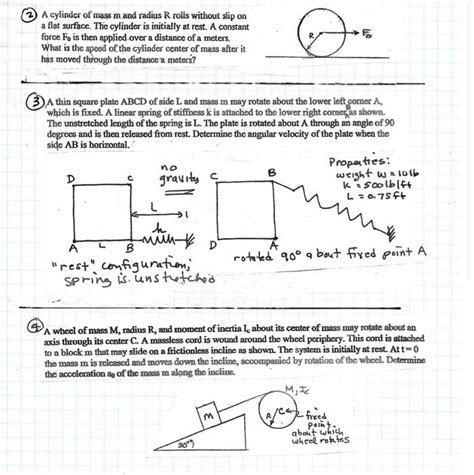 ② A cylinder of mass m and radius R rolls without slip on
a flat surface. The cylinder is initially at rest. A constant
force F₀ is then applied over a distance of a meters.
What is the speed of the cylinder center of mass after it
has moved through the distance a meters?
R
F₀
③ A thin square plate ABCD of side L and mass m may rotate about the lower left corner A,
which is fixed. A linear spring of stiffness k is attached to the lower right corner B as shown.
The unstretched length of the spring is L. The plate is rotated about A through an angle of 90
degrees and is then released from rest. Determine the angular velocity of the plate when the
side AB is horizontal.
Properties:
weight W = 10 lb
K = 500 lb/ft
L = 0.75 ft
no
gravity
D C
L
k
A L B
C B
D A
rotated 90° about fixed point A
"rest" configuration;
spring is unstretched
④ A wheel of mass M, radius R, and moment of inertia Ic about its center of mass may rotate about an
axis through its center C. A massless cord is wound around the wheel periphery. This cord is attached
to a block m that may slide on a frictionless incline as shown. The system is initially at rest. At t = 0
the mass m is released and moves down the incline, accompanied by rotation of the wheel. Determine
the acceleration a₀ of the mass m along the incline.
M, Ic
m
R C
fixed
point
about which
wheel rotates
30°